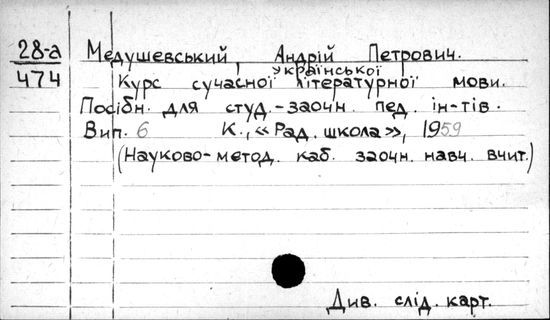 28-а Медушевський, Андрій Петрович.
474 Курс сучасної української літературної мови.
Посібн. для студ.-заочн. пед. ін-тів.
Вип. 6 К., «Рад. школа», 1959
(Науково-метод. каб. заочн. навч. вчит.)
Див. слід. карт.